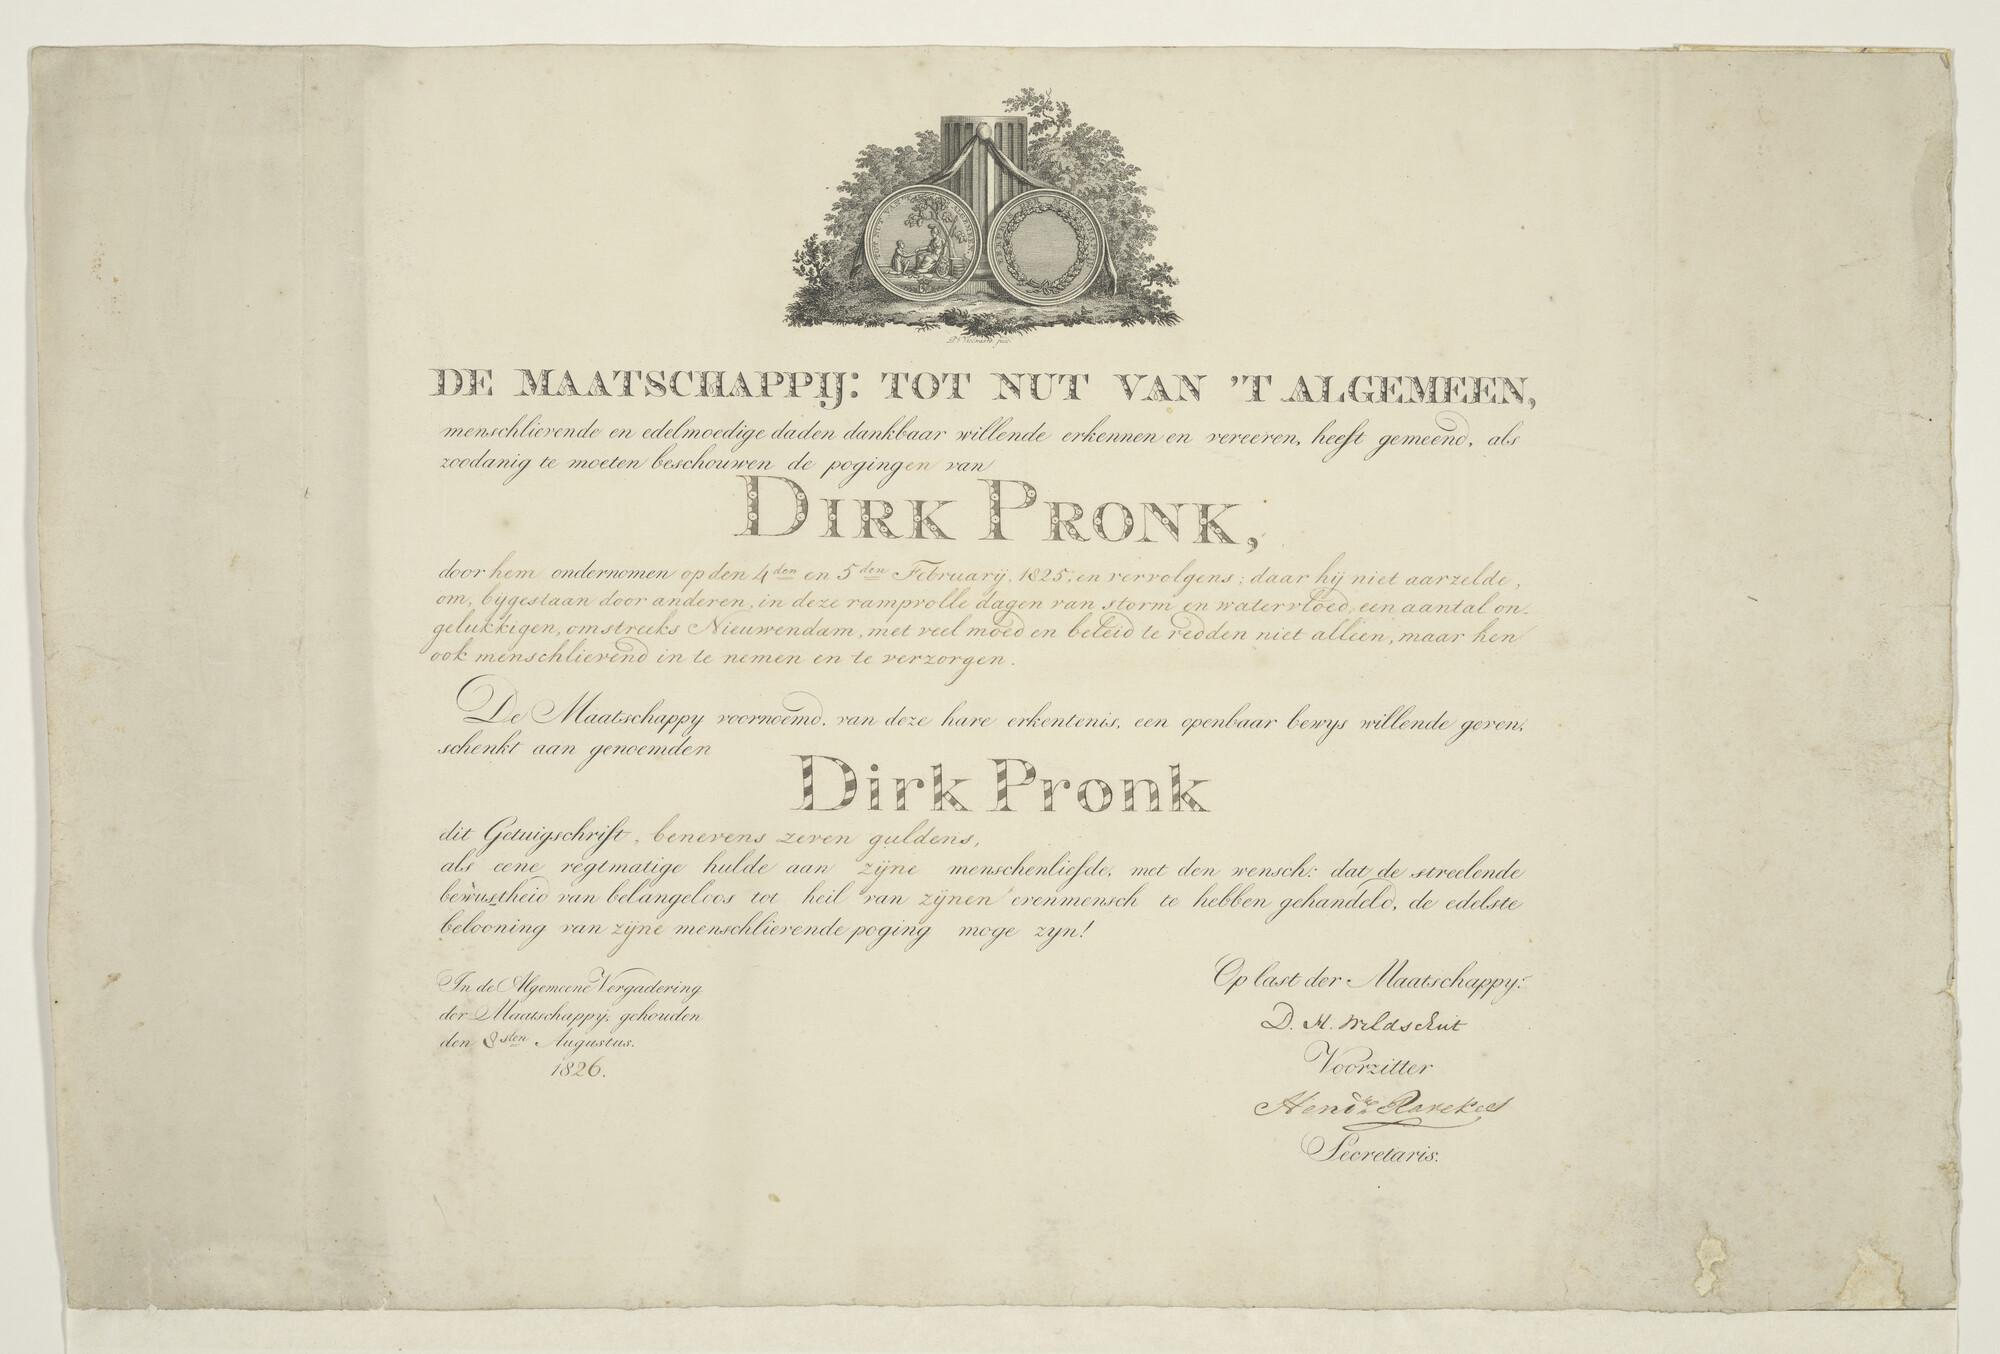 TOT NUT VAN
DE MAATSCHAPPIJ: TOT NUT VAN 'T ALGEMEEN,
menschlievende en edelmoedige daden dankbaar willende erkennen en vereeren, heeft gemeend, als
zoodanig te moeten beschouwen de pogingen van
DIRK PRONK,
door hem ondernomen op den 4den en 5den Februarij, 1825, en vervolgens; daar hij niet aarzelde,
om, bijgestaan door anderen, in deze rampvolle dagen van storm en watervloed, een aantal on-
gelukkigen, omstreeks Nieuwendam, met veel moed en beleid te redden niet alleen, maar hen
ook menschlievend in te nemen en te verzorgen.
De Maatschappy voornoemd, van deze hare erkentenis, een openbaar bewys willende geven,
schenkt aan genoemden
Dirk Pronk
dit Getuigschrift, benevens zeven guldens,
als eene regtmatige hulde aan zijne menschenliefde, met den wensch: dat de streelende
bewustheid van belangeloos tot heil van zijnen evenmensch te hebben gehandeld, de edelste
belooning van zijne menschlievende poging moge zyn!
In de Algemeene Vergadering
der Maatschappy, gehouden
den 8sten Augustus.
1826.
Op last der Maatschappy:
D. H. Wildschut
Voorzitter
Hendk Ravekes
Secretaris.